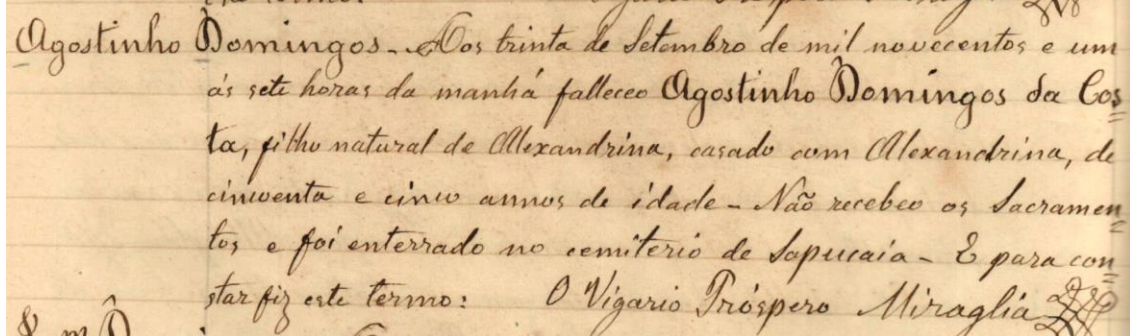 Agostinho Domingos - Aos trinta de Setembro de mil novecentos e um
ás sete horas da manhá falleceo Agostinho Domingos da Cos=
ta, filho natural de Alexandrina, casado com Alexandrina, de
cincoenta e cinco annos de idade - Não recebeo os Sacramen=
tos e foi enterrado no cemiterio de Sapucaia - E para con=
star fiz este termo: O Vigario Próspero Miraglia